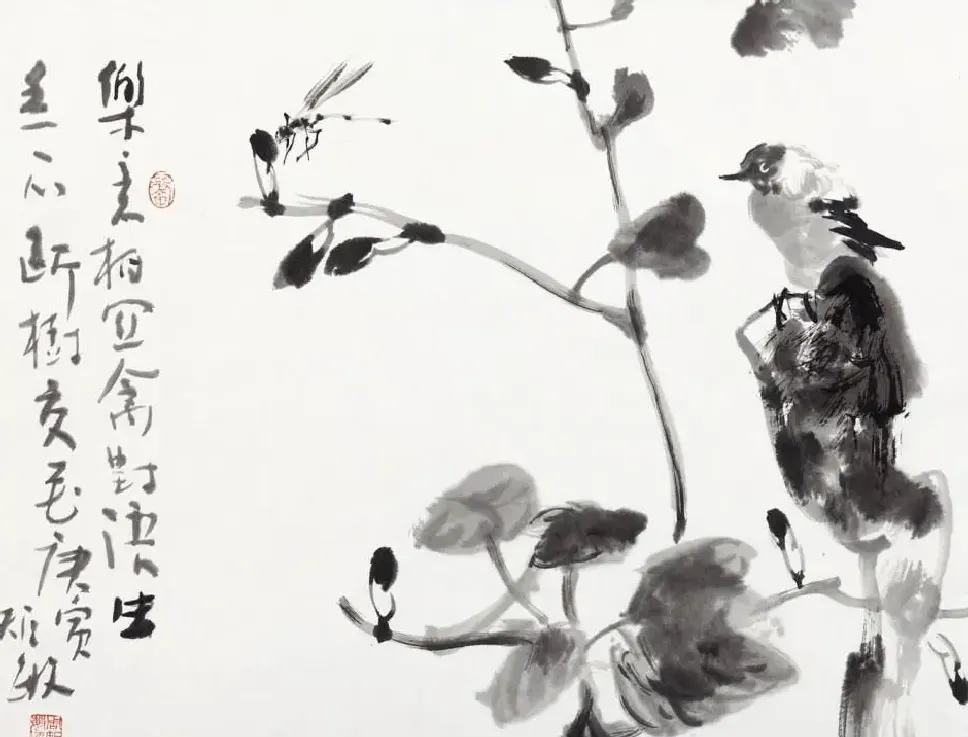 樂意相關禽對語生
香不斷樹交花庚寅